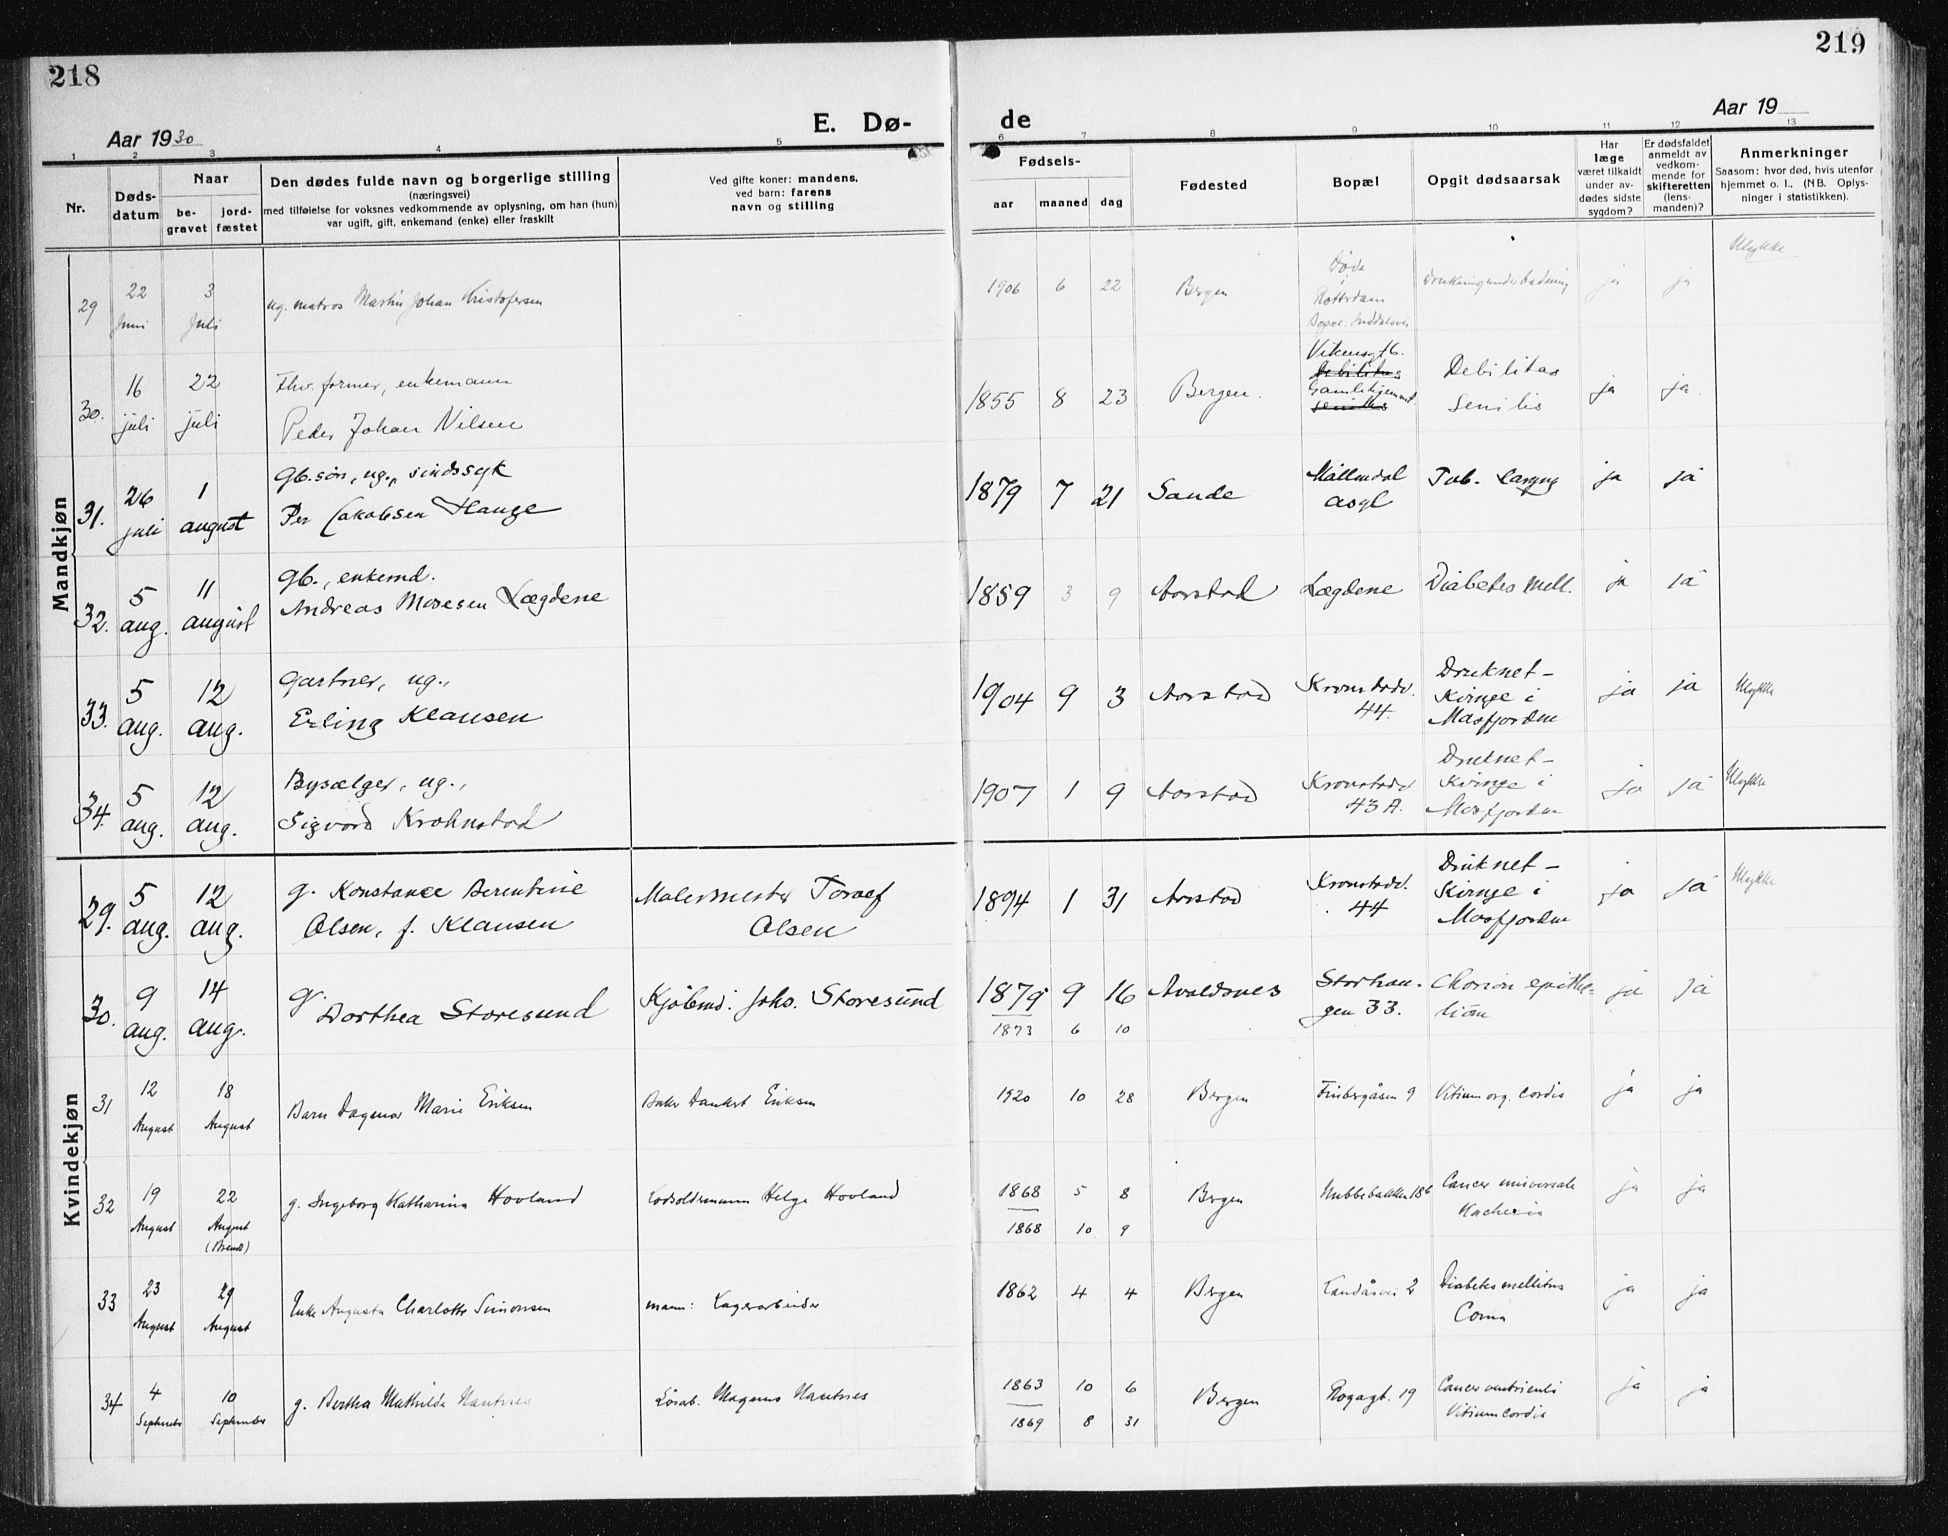 218
219
Aar 1930
E. Dø-
de
Aar 19
1 2 3 4 5 6 7 8 9 10 11 12 13
Nr.
Døds-
datum
Naar
be-
gravet
jord-
fæstet
Den dødes fulde navn og borgerlige stilling
(næringsvei)
med tilføielse for voksnes vedkommende av oplysning, om han (hun)
var ugift, gift, enkemand (enke) eller fraskilt
Ved gifte koner: mandens,
ved barn: farens
navn og stilling
Fødsels-
aar maaned dag
Fødested
Bopæl
Opgit dødsaarsak
Har
læge
været tilkaldt
under av-
dødes sidste
sygdom?
Er dødsfaldet
anmeldt av
vedkom-
mende for
skifteretten
(lens-
manden)?
Anmerkninger
Saasom: hvor død, hvis utenfor
hjemmet o. l., (NB. Oplys-
ninger i statistikken).
Mandkjøn
29 22 Juni 3 Juli
ug. matros Martin Johan Kristofersen
1906 6 22 Bergen
Døde
Rotterdam
Bopæl:
Drukning under badning
ja ja
Ulykke
30. 16 juli 22 juli
Fhv. former, enkemann
Peder Johan Nilsen
1855 8 23 Bergen.
Vikensgt 6.
Debilitas
Gamlehjemmet
senilis
Debilitas
Senilis
ja ja.
31. 26 juli 1 august
Gb. søn, ug., sindssyk
Per Jakobsen Hauge
1879 7 21 Sande
Møllendal
asyl
Tub. Laryng
ja ja
32. 5 aug. 11 august
Gb., enkemd.
Andreas Mosesen Lægdene
1859 3 9 Aarstad Lægdene Diabetes mell. ja ja
33. 5 aug. 12 aug.
Gartner, ug.,
Erling Klausen
1904 9 3 Aarstad
Kronstadv.
44.
Druknet -
Kvinge i
Masfjorden
ja ja Ulykke
34. 5 aug. 12 aug.
Bysælger, ug.,
Sigvard Krohnstad
1907 1 9 Aarstad
Kronstadv
43 A.
Druknet -
Kvinge i
Masfjorden
ja ja Ulykke
Kvindekjøn
29. 5 aug. 12 aug.
g. Konstance Berentine
Olsen, f. Klausen
Malermester Toralf
Olsen
1894 1 31 Aarstad
Kronstadv.
44
Druknet -
Kvinge i
Masfjorden
ja ja Ulykke
30. 9 aug. 14 aug.
g. Dorthea Storesund
Kjøbmd. Johs. Storesund
1879 9 16 Avaldsnes
1873 6 10
Storhau-
gen 33.
Chorion epithe-
liom
ja ja
31 12 August 18 August
Barn Dagmar Marie Eriksen
Baker Dankert Eriksen
1920 10 28 Bergen Finbergåsen 9 Vitium org. cordis ja ja
32 19 August 22 August
(Brændt)
g. Ingeborg Katharina Hovland
Lodsoldermann Helge Hovland
1868 5 8 Bergen
1868 10 9
Nubbebakken 18b
Cancer universale
Kachexia
ja ja
33 23 August 29 August
Enke Augusta Charlotte Simonsen
mann: Lagerarbeider
1862 4 4 Bergen Landåsvei 2
Diabetes mellitus
Coma
ja ja
34 4 September 10 September
g. Bertha Mathilde Hantnes
Løsarb. Magnus Hantnes
1863 10 6 Bergen
1869 8 31
Rogagt. 19
Cancer ventriculi
Vitium cordis
ja ja